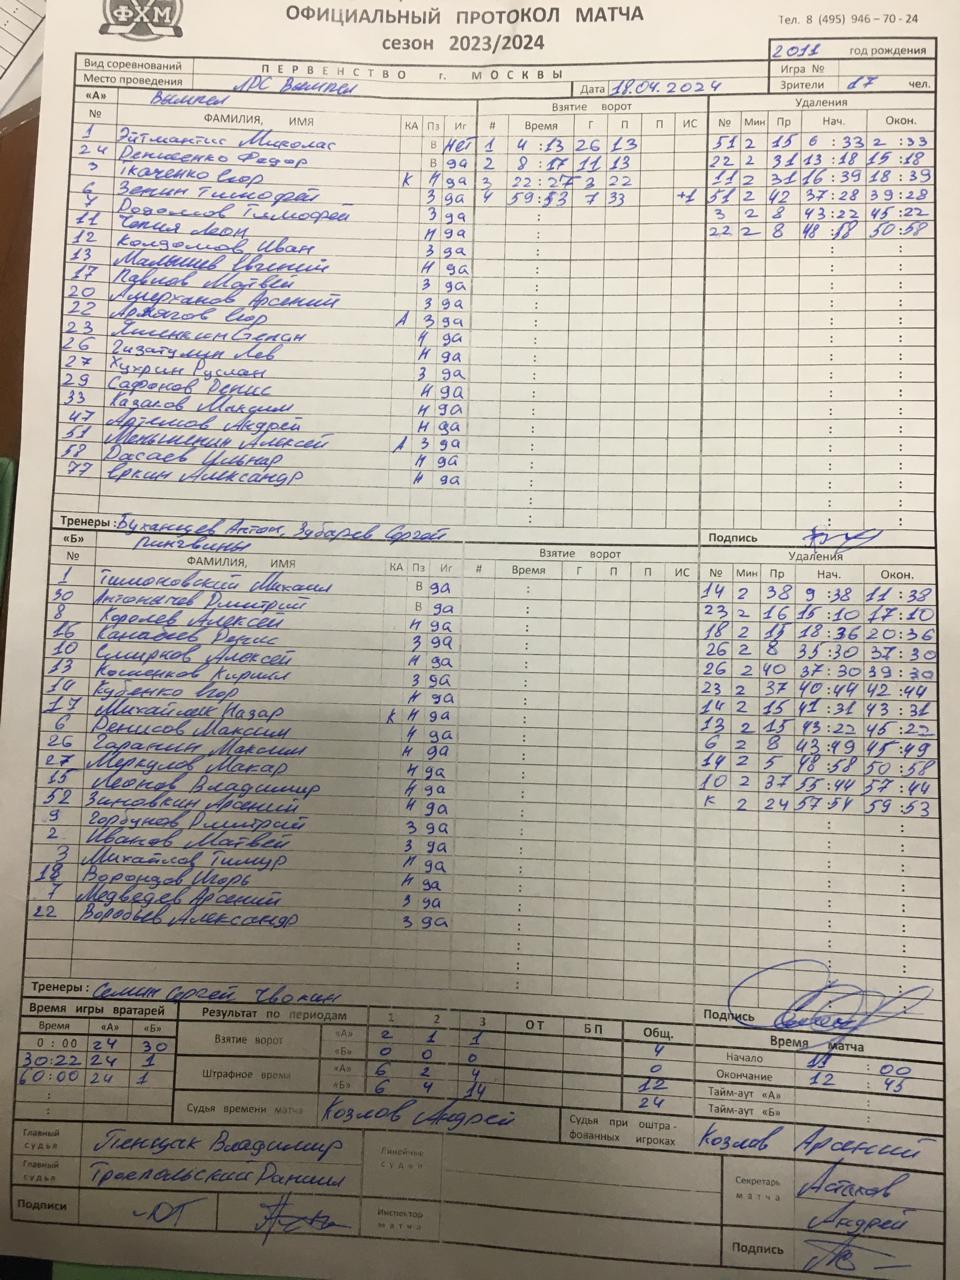 ФХМ
ОФИЦИАЛЬНЫЙ ПРОТОКОЛ МАТЧА
сезон 2023/2024
Тел. 8 (495) 946 – 70 - 24
2011 год рождения
Вид соревнований ПЕРВЕНСТВО г. МОСКВЫ Игра №
Место проведения ЛДС Вымпел Дата 18.04.2024 Зрители 17 чел.
«А» Вымпел Взятие ворот Удаления
№ ФАМИЛИЯ, ИМЯ КА Пз Иг # Время Г П П ИС № Мин Пр Нач. Окон.
1 Эйтмантис Миколас В нет 1 4:13 26 13 51 2 15 6:33 2:33
24 Денисенко Федор В да 2 8:17 11 13 22 2 31 13:18 15:18
3 Ткаченко Егор К Н да 3 22:27 3 22 11 2 31 16:39 18:39
6 Зенин Тимофей З да 4 59:53 7 33 +1 51 2 42 37:28 39:28
7 Тимофей З да 3 2 8 43:22 45:22
11 Леон Н да 22 2 8 48:18 50:58
12 Иван З да
13 Малышев Евгений Н да
17 Павлов Матвей З да
20 Амерханов Арсений З да
22 Егор А З да
23 Яшенкин Степан Н да
26 Гизатулин Лев Н да
27 Хухрин Руслан З да
29 Сафонов Денис Н да
33 Казаков Максим Н да
47 Артемов Андрей Н да
51 Меньшенин Алексей А З да
58 Дасаев Ильнар Н да
77 Еркин Александр Н да
Тренеры: Буханцев Антон, Зубарев Сергей Подпись
«Б» Пингвины Взятие ворот Удаления
№ ФАМИЛИЯ, ИМЯ КА Пз Иг # Время Г П П ИС № Мин Пр Нач. Окон.
1 Тимоновский Михаил В да 14 2 38 9:38 11:38
30 Дмитрий В да 23 2 16 15:10 17:10
8 Королев Алексей Н да 18 2 15 18:36 20:36
16 Канабеев Денис З да 26 2 8 35:30 37:30
10 Смирнов Алексей Н да 26 2 40 37:30 39:30
13 Кирилл З да 23 2 37 40:44 42:44
14 Кубенко Егор Н да 14 2 15 41:31 43:31
17 Михайлюк Назар К Н да 13 2 15 43:22 45:22
6 Денисов Максим Н да 6 2 8 43:49 45:49
26 Гаранин Максим Н да 14 2 5 48:58 50:58
27 Меркулов Макар Н да 10 2 37 55:44 57:44
15 Леонов Владимир Н да К 2 24 57:54 59:53
52 Зиновкин Арсений Н да
9 Горбунов Дмитрий З да
2 Иванов Матвей З да
3 Михайлов Тимур Н да
18 Воронцов Игорь Н да
7 Медведев Арсений З да
22 Воробьев Александр З да
Тренеры: Семин Сергей Подпись
Время игры вратарей Результат по периодам 1 2 3 ОТ БП Общ. Время матча
Время «А» «Б» Взятие ворот «А» 2 1 1 4 Начало 11:00
0:00 24 30 «Б» 0 0 0 0 Окончание 12:45
30:22 24 1 Штрафное время «А» 6 2 4 12 Тайм-аут «А»
60:00 24 1 «Б» 6 4 14 24 Тайм-аут «Б»
Судья времени матча Козлов Андрей Судья при оштрафованных игроках Козлов Арсений
Главный судья Пенщак Владимир Линейные судьи
Главный судья Троепольский Даниил Секретарь матча Астахов Андрей
Подписи Инспектор матча Подпись